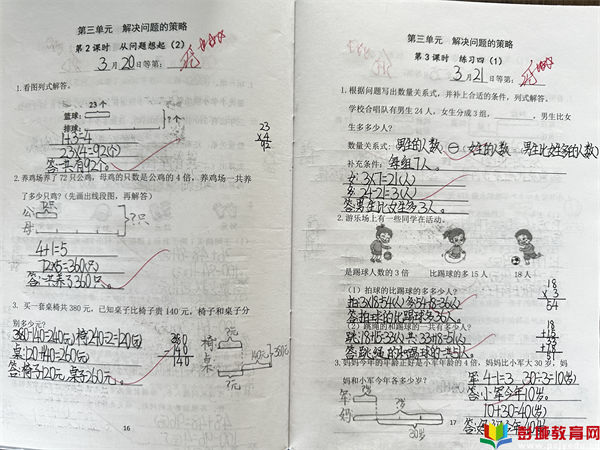 第三单元 解决问题的策略
第2课时 从问题想起（2）
3月20日等第：
1.看图列式解答。
23个
篮球：
排球：
?个
1+3=4
23×4=92(个)
答:共有92个。
23
×4
92
2.养鸡场养了72只公鸡，母鸡的只数是公鸡的4倍，养鸡场一共养
了多少只鸡？（先画出线段图，再解答）
72只
公
母
?只
4+1=5
72×5=360(只)
答:共养了360只。
3.买一套桌椅共380元，已知桌子比椅子贵140元，椅子和桌子分
别多少元？
380-140=240(元) 椅240÷2=120(元)
桌:120+140=260(元)
答:椅子120元,桌子260元。
380
-140
140
?元
椅
桌
140元
380元
?元
16
第三单元 解决问题的策略
第3课时 练习四（1）
3月21日等第：
1.根据问题写出数量关系式，并补上合适的条件，列式解答。
学校合唱队有男生24人，女生分成3组，，男生比女
生多多少人？
数量关系式：男生的人数 － 女生的人数 男生比女生多的人数
补充条件：每组7人。
女:3×7=21(人)
多:24-21=3(人)
答:男生比女生多3人。
2.游乐场上有一些同学在活动。
是踢球人数的3倍 比踢球的多15人 18人
（1）拍球的比踢球的多多少人？
拍:3×18=54(人) 多54-18=36(人)
答:拍球的比踢球多36人。
18
×3
54
（2）跳绳的和踢球的一共有多少人？
跳:18+15=33(人) 共:33+18=51(人)
答:跳绳的和踢球的一共51人。
18
+15
33
33
+18
51
3.妈妈今年的年龄正好是小军年龄的4倍，妈妈比小军大30岁，妈
妈和小军今年各多少岁？
军 4-1=3 30÷3=10(岁)
答:小军今年10岁。
10+30=40(岁)
军
?岁
妈
30岁
17
彭城教育网